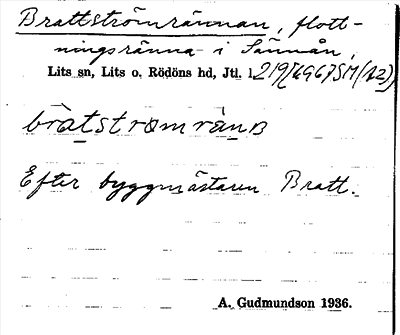 Brattströmrännan, flott-
ningsränna i Sännån,
Lits sn, Lits o. Rödöns hd, Jtl. l.
bratström ränB
Efter byggmästaren Bratt.
A. Gudmundson 1936.